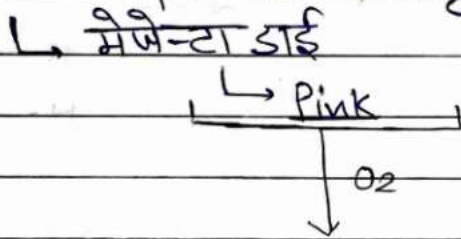 ↳ मेजेन्टा डाई
↳ Pink
O2